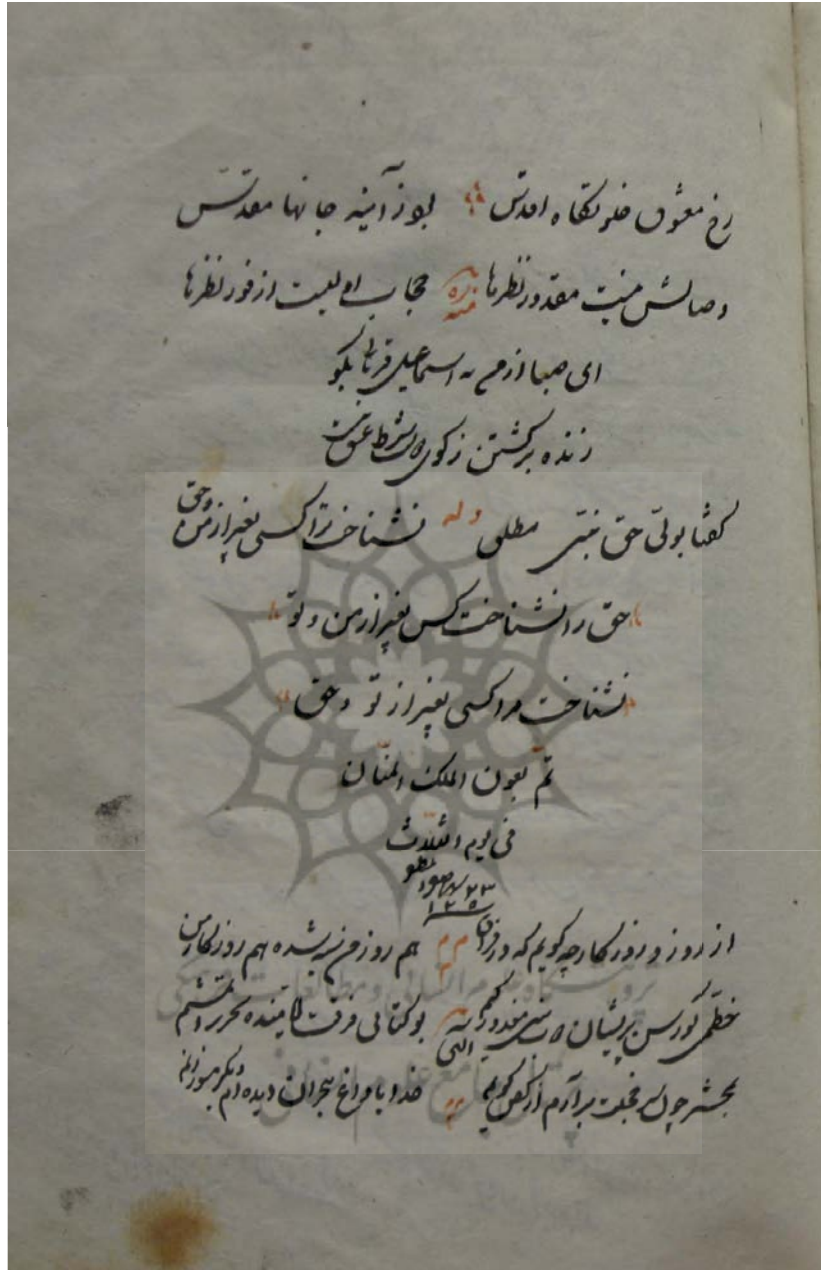 رخ معشوق خلوتگاه اقدس بود ز آئینه جانها مقدس
وصالش نیست مقدور نظرها حجاب او لیست از فور نظرها
ای صبا از من به اسماعیل قربانی بگو
زنده برگشتن ز کوی شرط عشق نیست
گفتا بولی حق نبی مطلبی وله نشناخت ترا کسی بغیر از من و حق
حق را نشناخت کس بغیر از من و تو
نشناخت مرا کسی بغیر از تو و حق
تم بعون الملک المنان
فی یوم الثلاث
۱۲۵۳
از روز و روزگار چه گویم که در فراق هم روز من سیه شده هم روزگار من
خطمی کورسن پریشان بو کتابی فرقت
بمحشر چون سر خجلت برآرم از کفن گویم خدایا داغ هجران دیده ام دیگر مسوزانم